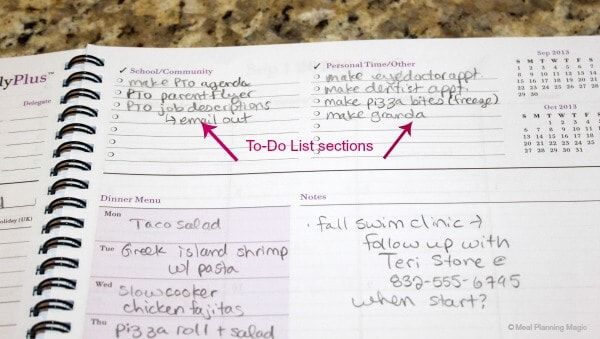 lyPlus™
Delegate
oliday (UK)
✓ School/Community
make PTO agenda
PTO parent flyer
PTO job descriptions
↳ email out
✓ Personal Time/Other
make eye doctor appt.
make dentist appt.
make pizza bites (freeze)
make granola
To-Do List sections
Sep 2013
S M T W T F S
1 2 3 4 5 6 7
8 9 10 11 12 13 14
15 16 17 18 19 20 21
22 23 24 25 26 27 28
29 30
Oct 2013
S M T W T F S
1 2 3 4 5
6 7 8 9 10 11 12
13 14 15 16 17 18 19
20 21 22 23 24 25 26
27 28 29 30 31
Dinner Menu
Mon
Taco salad
Tue Greek island shrimp
w/ pasta
Wed
slow cooker
chicken fajitas
Thu
pizza roll + salad
Notes
· fall swim clinic →
follow up with
Teri Stone @
832-555-6795
when start?
© Meal Planning Magic